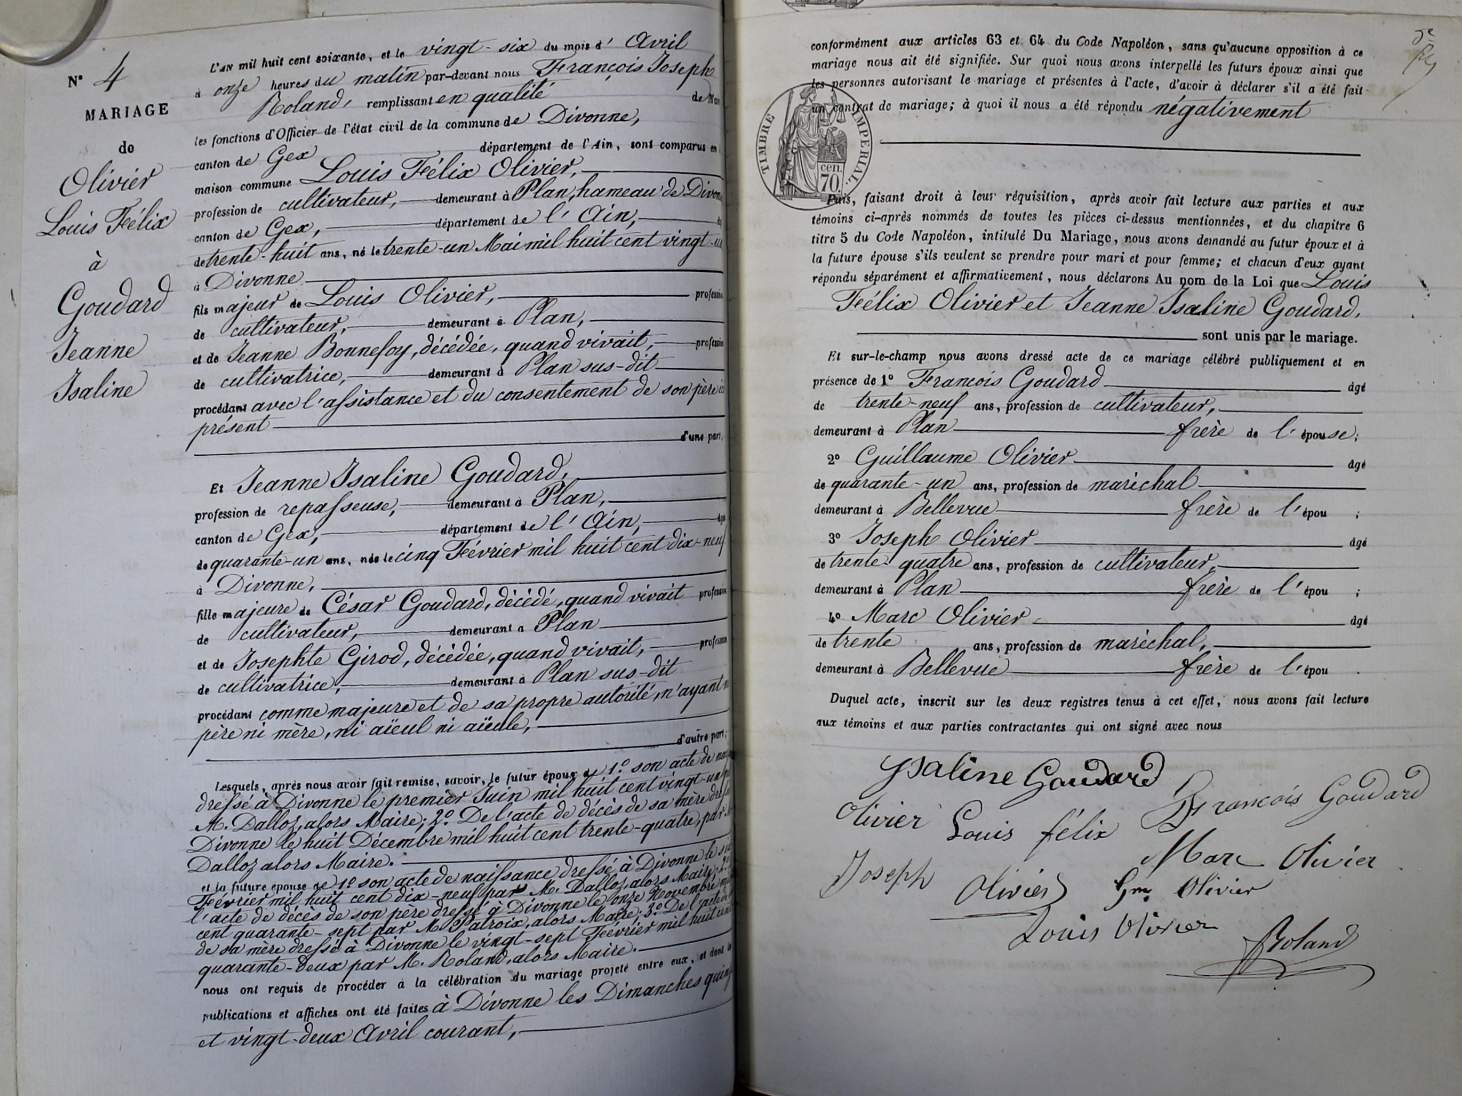 N° 4
MARIAGE
de
Olivier
Louis Félix
à
Goudard
Jeanne
Isaline
L'AN mil huit cent soixante, et le vingt-six du mois d' Avril
à onze heures du matin par-devant nous François Joseph
Roland, remplissant en qualité de
les fonctions d'Officier de l'état civil de la commune de Divonne,
canton de Gex département de l'Ain, sont comparus en
maison commune Louis Félix Olivier,
profession de cultivateur, demeurant à Plan, hameau de Divonne
canton de Gex, département de l'Ain,
de trente-huit ans, né le trente-un Mai mil huit cent vingt-un
à Divonne
fils majeur de Louis Olivier, profession
de cultivateur, demeurant à Plan,
et de Jeanne Bonnefoy, décédée, quand vivait, profession
de cultivatrice, demeurant à Plan sus-dit
procédant avec l'assistance et du consentement de son père ici
présent
d'une part,
Et Jeanne Isaline Goudard,
profession de repasseuse, demeurant à Plan,
canton de Gex, département de l'Ain, âgée
de quarante-un ans, née le cinq Février mil huit cent dix-neuf
à Divonne,
fille majeure de César Goudard, décédé, quand vivait profession
de cultivateur, demeurant à Plan
et de Josephte Girod, décédée, quand vivait, profession
de cultivatrice, demeurant à Plan sus-dit
procédant comme majeure et de sa propre autorité, n'ayant ni
père ni mère, ni aïeul ni aïeule,
d'autre part;
Lesquels, après nous avoir fait remise, savoir, le futur époux de 1° son acte de
dressé à Divonne le premier Juin mil huit cent vingt-un par
M. Dalloz, alors Maire; 2° De l'acte de décès de sa mère dressé
Divonne le huit Décembre mil huit cent trente-quatre, par M.
Dalloz alors Maire.
et la future épouse de 1° son acte de naissance dressé à Divonne le
Février mil huit cent dix-neuf par M. Dalloz, alors Maire; 2°
l'acte de décès de son père dressé à Divonne le onze Novembre
cent quarante-sept par M. Patroix, alors Maire; 3° De l'acte de
de sa mère dressé à Divonne le vingt-sept Février mil huit cent
quarante-deux par M. Roland, alors Maire.
nous ont requis de procéder à la célébration du mariage projeté entre eux, et dont les
publications et affiches ont été faites à Divonne les Dimanches quinze
et vingt-deux Avril courant,
conformément aux articles 63 et 64 du Code Napoléon, sans qu'aucune opposition à ce
mariage nous ait été signifiée. Sur quoi nous avons interpellé les futurs époux ainsi que
les personnes autorisant le mariage et présentes à l'acte, d'avoir à déclarer s'il a été fait
un contrat de mariage; à quoi il nous a été répondu négativement
TIMBRE IMPÉRIAL.
cen.
70.
Puis, faisant droit à leur réquisition, après avoir fait lecture aux parties et aux
témoins ci-après nommés de toutes les pièces ci-dessus mentionnées, et du chapitre 6
titre 5 du Code Napoléon, intitulé Du Mariage, nous avons demandé au futur époux et à
la future épouse s'ils veulent se prendre pour mari et pour femme; et chacun d'eux ayant
répondu séparément et affirmativement, nous déclarons Au nom de la Loi que Louis
Félix Olivier et Jeanne Isaline Goudard,
sont unis par le mariage.
Et sur-le-champ nous avons dressé acte de ce mariage célébré publiquement et en
présence de 1° François Goudard âgé
de trente-neuf ans, profession de cultivateur,
demeurant à Plan frère de l'épouse;
2° Guillaume Olivier âgé
de quarante-un ans, profession de maréchal
demeurant à Bellevue frère de l'épou ;
3° Joseph Olivier âgé
de trente-quatre ans, profession de cultivateur,
demeurant à Plan frère de l'épou ;
4° Marc Olivier âgé
de trente ans, profession de maréchal,
demeurant à Bellevue frère de l'épou .
Duquel acte, inscrit sur les deux registres tenus à cet effet, nous avons fait lecture
aux témoins et aux parties contractantes qui ont signé avec nous
Isaline Goudard
Olivier Louis félix François Goudard
Joseph Olivier Marc Olivier
Gme Olivier
Louis Olivier
Roland